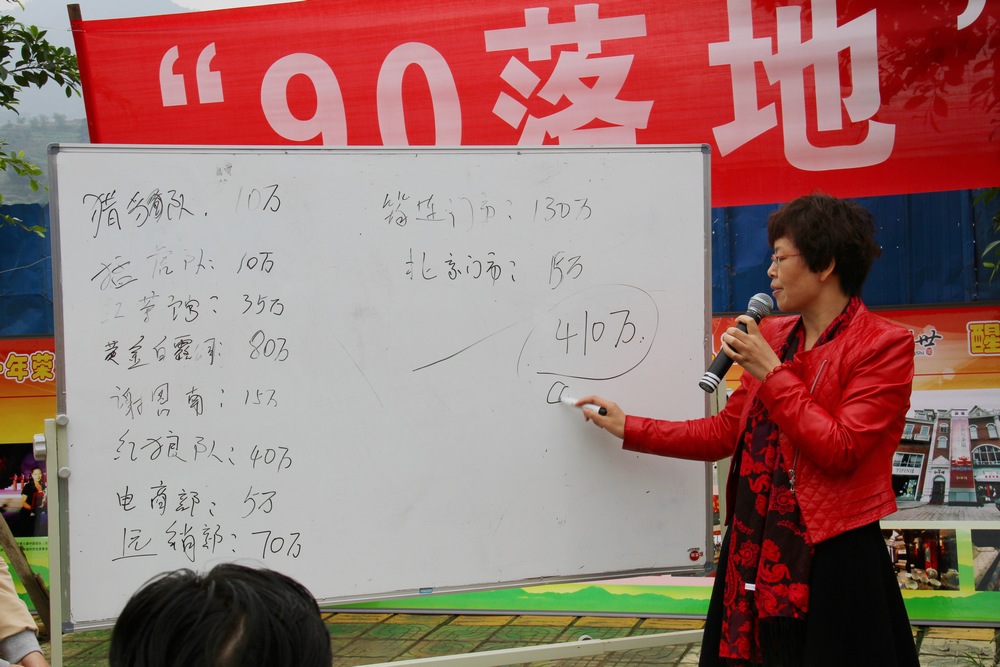 “90落地”
队. 10万
猛虎队: 10万
35万
黄金白露 80万
谢恩南: 15万
红狼队: 40万
电商部: 5万
远销部: 70万
筠连门市: 130万
北京门市: 15万
410万.
年荣
世
醒